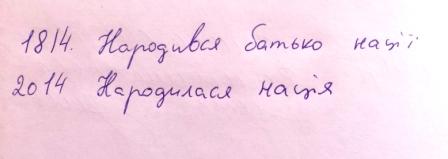 1814. Народився батько нації
2014 Народилася нація